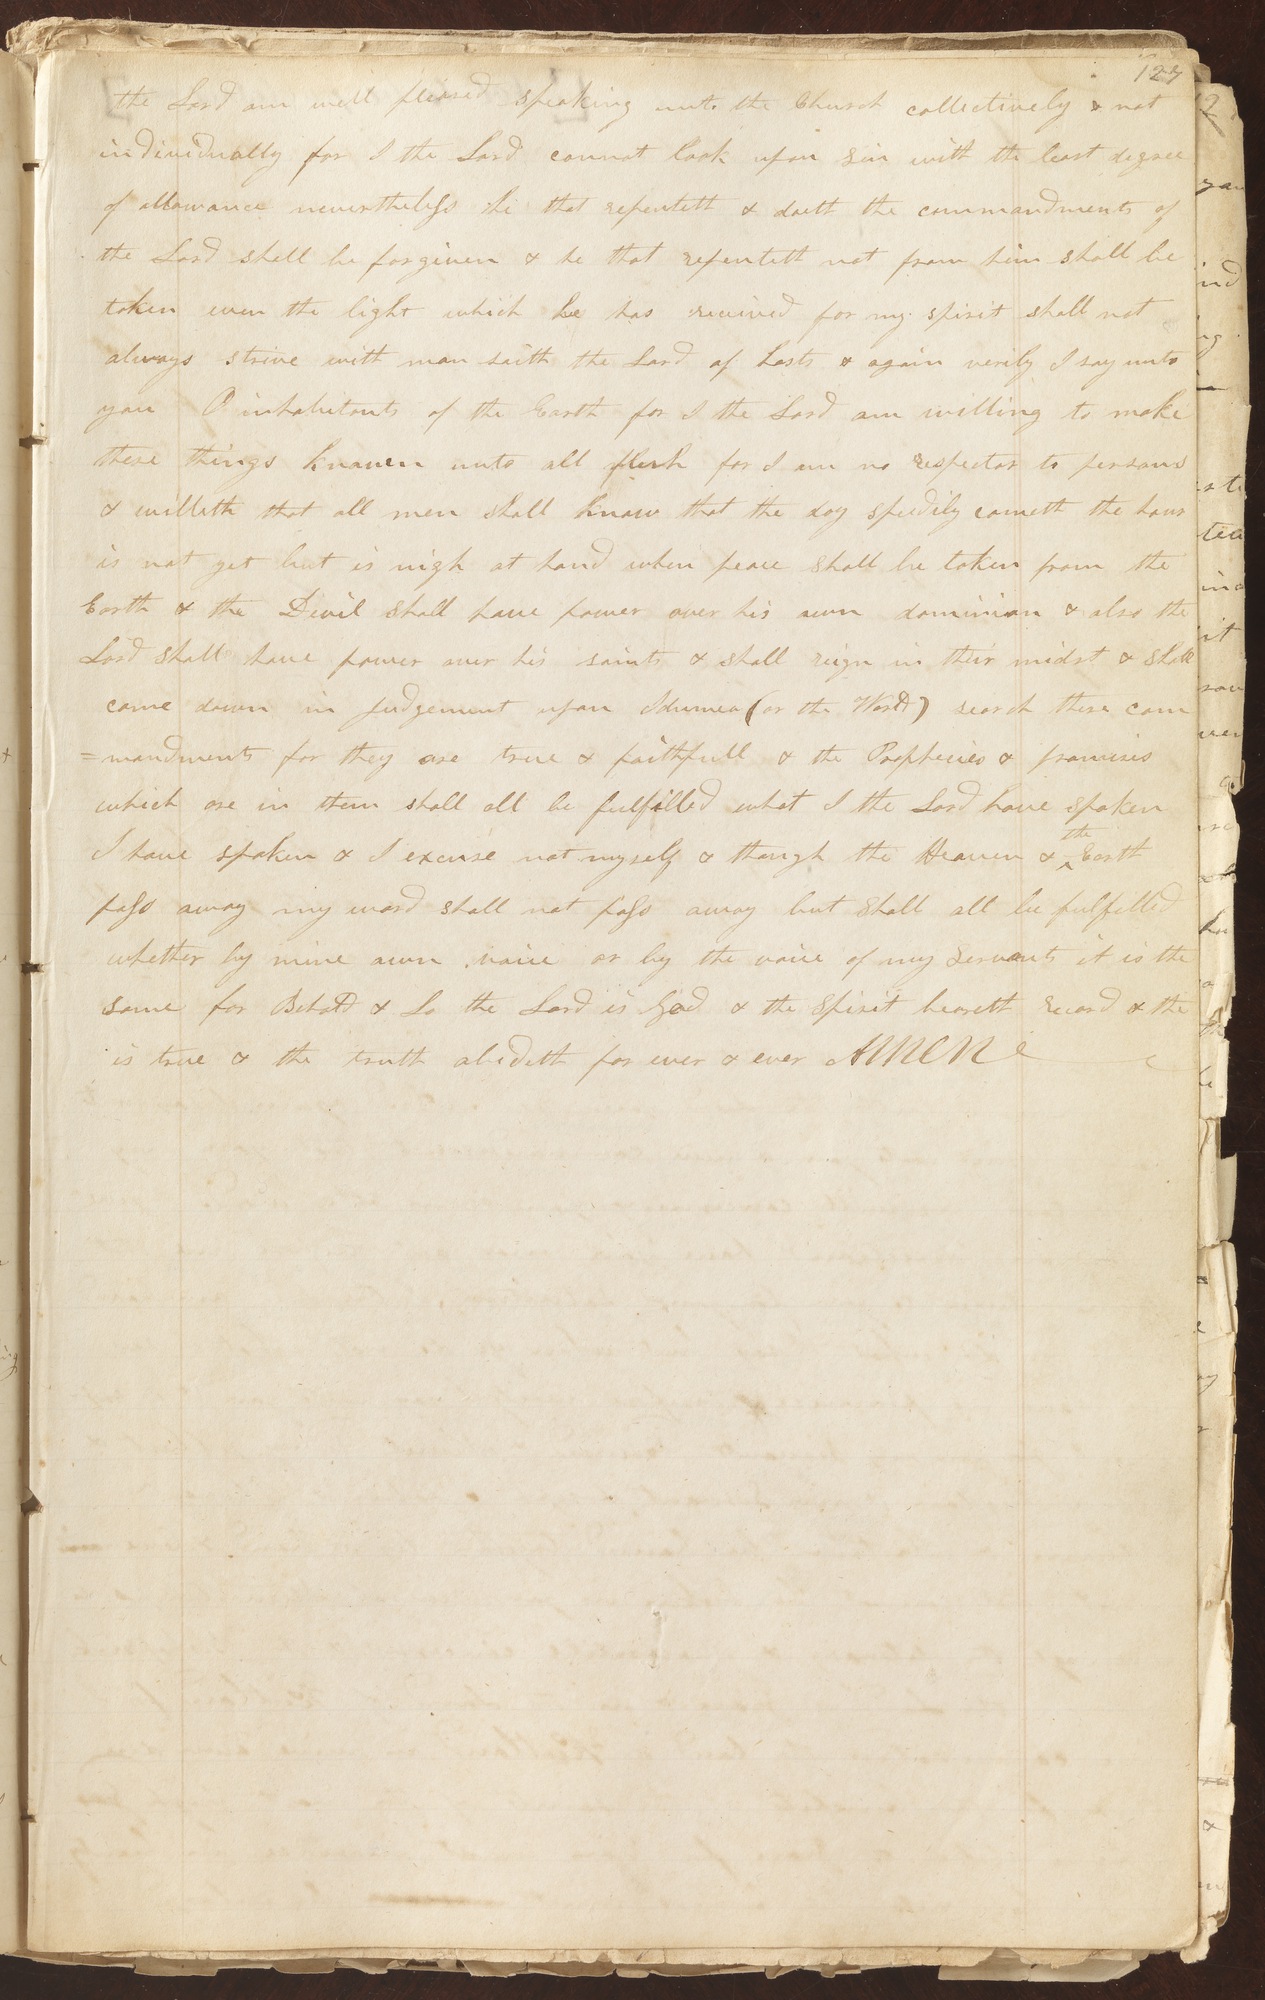 127
the Lord am well pleased speaking unto the Church collectively & not
individually for I the Lord cannot look upon sin with the least degree
of allowance nevertheless he that repenteth & doeth the commandments of
the Lord shall be forgiven & he that repenteth not from him shall be
taken even the light which he has received for my spirit shall not
always strive with man saith the Lord of hosts & again verily I say unto
you O inhabitants of the Earth for I the Lord am willing to make
these things known unto all flesh for I am no respector to persons
& willeth that all men shall know that the day speedily cometh the hour
is not yet but is nigh at hand when peace shall be taken from the
Earth & the Devil shall have power over his own dominion & also the
Lord shall have power over his saints & shall reign in their midst & shall
come down in judgement upon Idumea (or the World) search these com
=mandments for they are true & faithfull & the Prophecies & promises
which are in them shall all be fulfilled what I the Lord have spoken
I have spoken & I excuse not myself & though the Heaven & the Earth
pass away my word shall not pass away but shall all be fulfilled
whether by mine own voice or by the voice of my servants it is the
same for Behold & Lo the Lord is God & the spirit beareth record & the
is true & the truth abideth for ever & ever AMEN